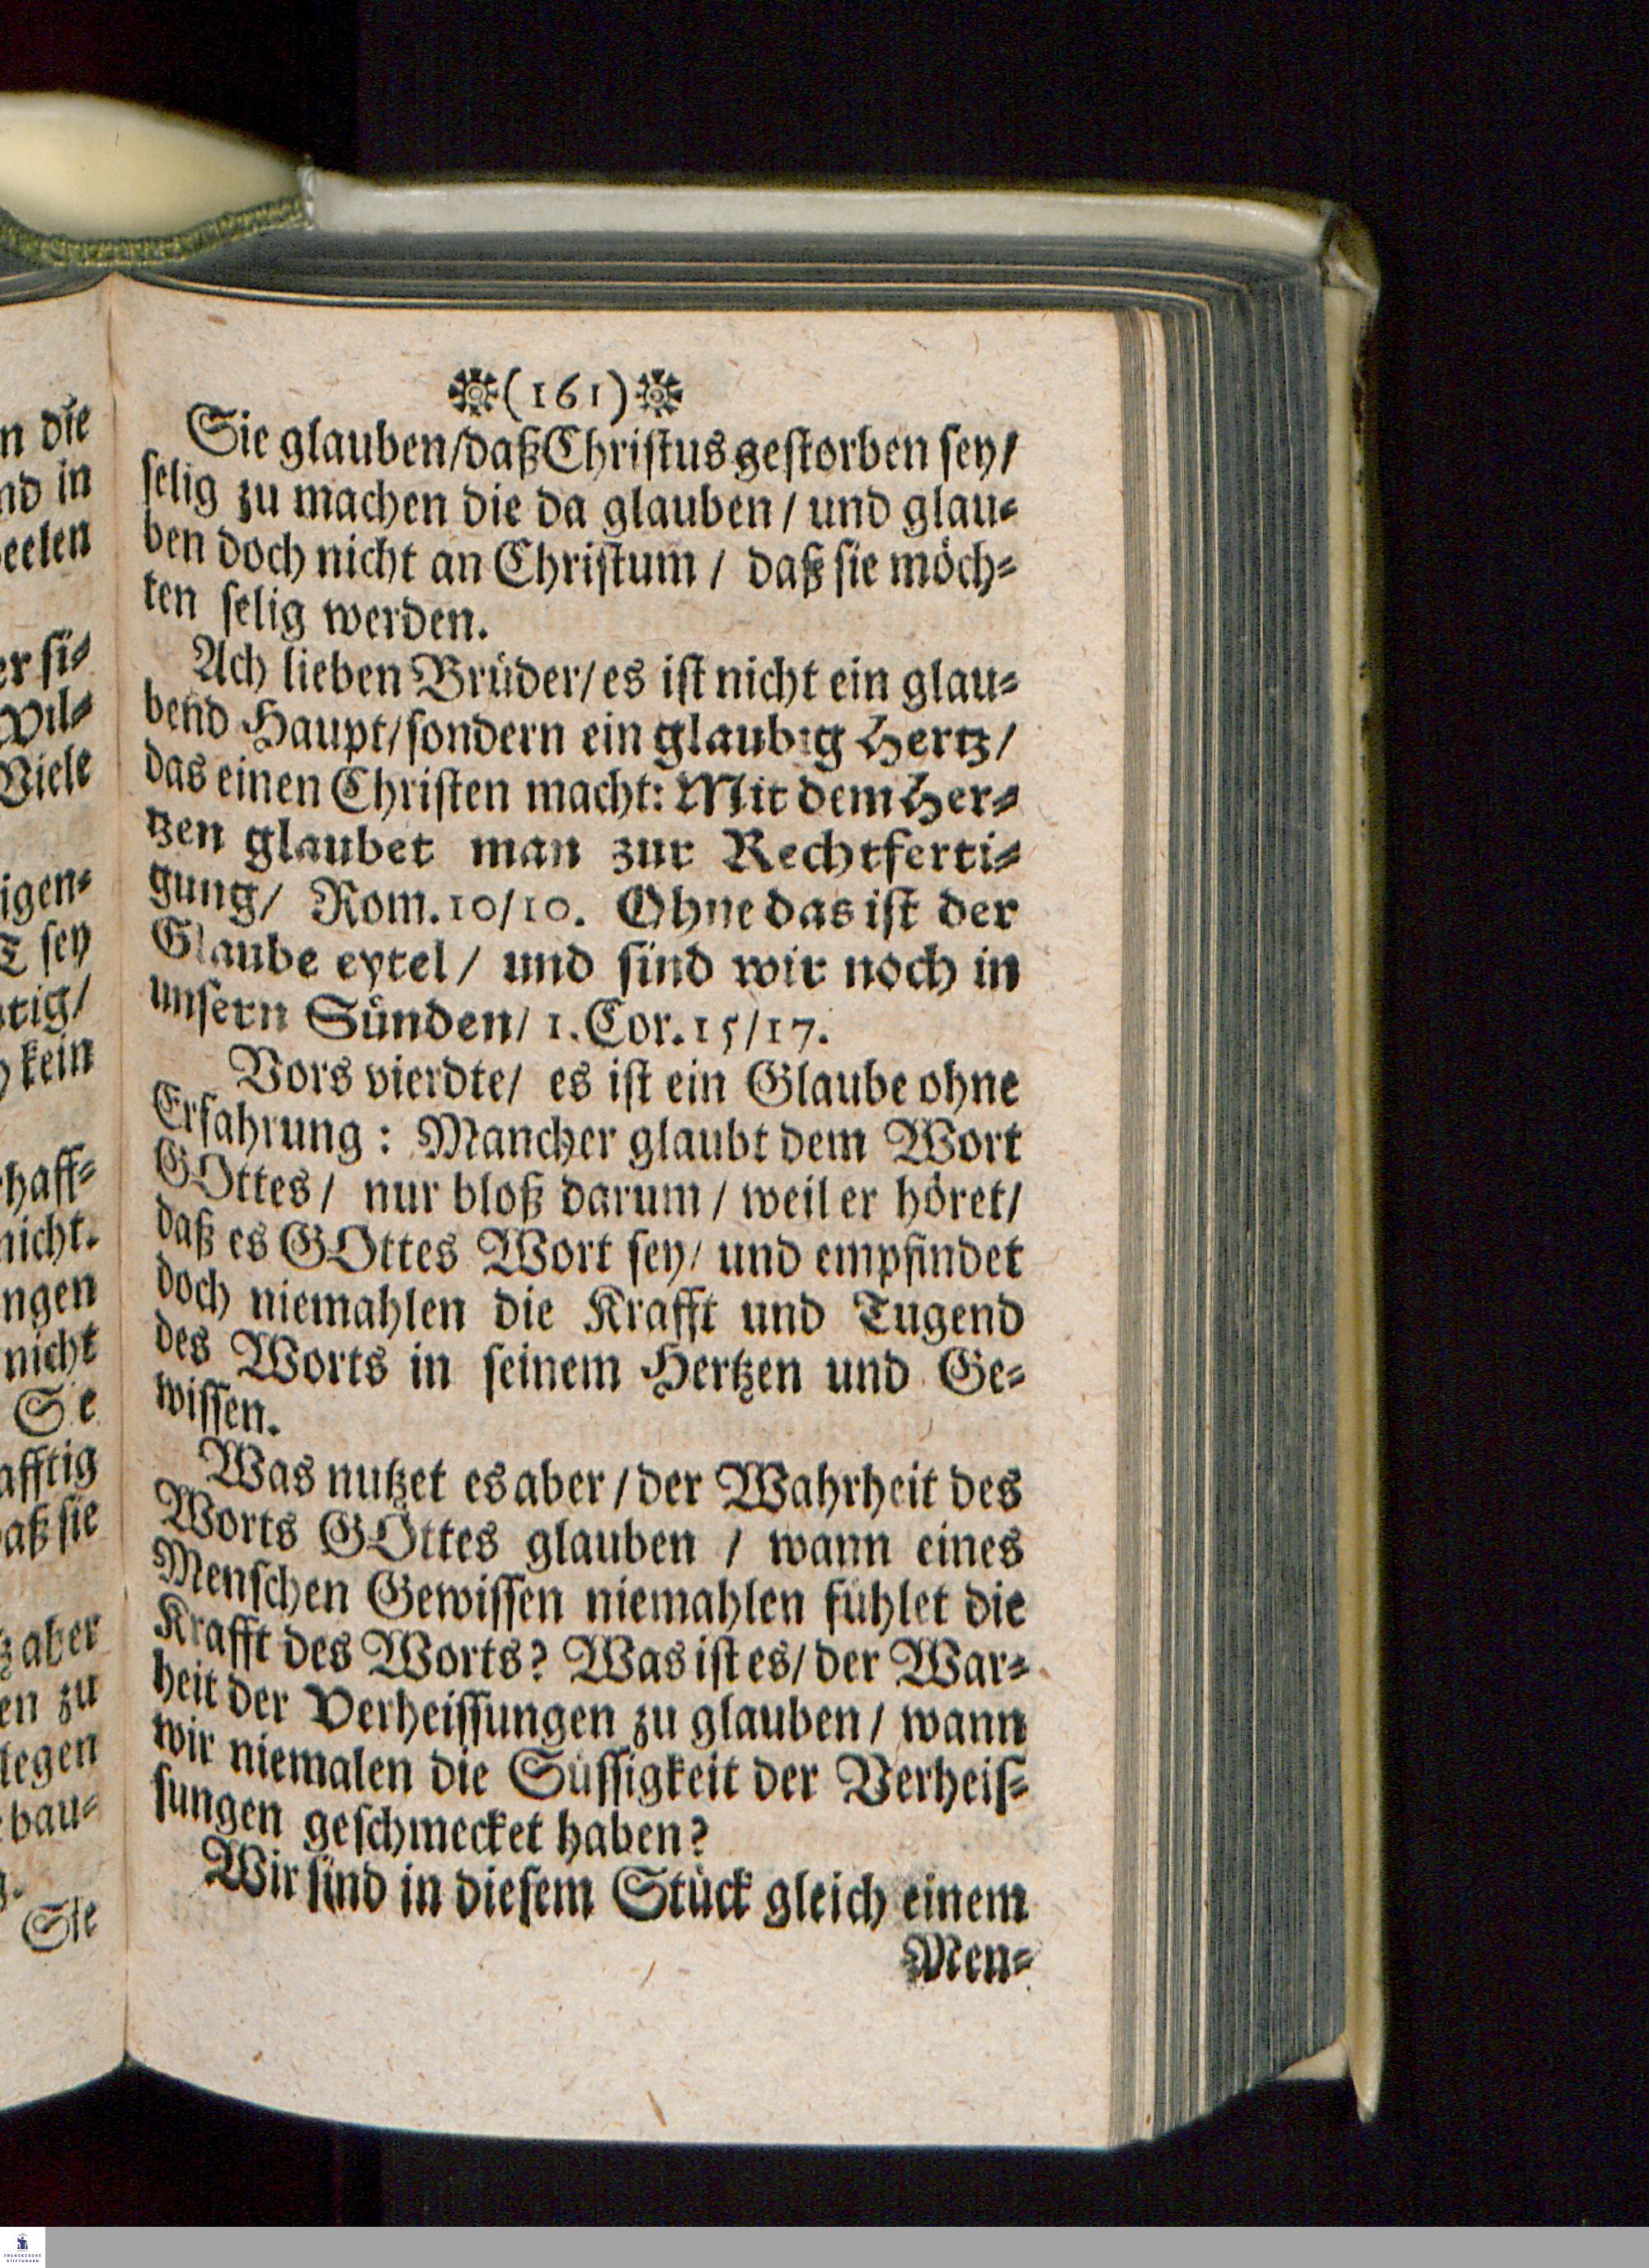 n die
nd in
eelen
er si⸗
Wil⸗
Viele
igen⸗
T sey
tig/
kein
haff⸗
nicht.
ngen
nicht
Sie
afftig
aß sie
aber
en zu
legen
bau⸗
Sie
(161)
Sie glauben/daß Christus gestorben sey/
selig zu machen die da glauben/ und glau⸗
ben doch nicht an Christum / daß sie möch⸗
ten selig werden.
Ach lieben Brüder/es ist nicht ein glau⸗
bend Haupt/sondern ein glaubig Hertz/
das einen Christen macht: Mit dem Her⸗
tzen glaubet man zur Rechtferti⸗
gung/ Rom.10/10. Ohne das ist der
Glaube eytel/ und sind wir noch in
unsern Sünden/ 1. Cor.15/17.
Vors vierdte/ es ist ein Glaube ohne
Erfahrung: Mancher glaubt dem Wort
GOttes/ nur bloß darum/ weil er höret/
daß es GOttes Wort sey/ und empfindet
doch niemahlen die Krafft und Tugend
des Worts in seinem Hertzen und Ge⸗
wissen.
Was nutzet es aber/der Wahrheit des
Worts GOttes glauben / wann eines
Menschen Gewissen niemahlen fühlet die
Krafft des Worts? Was ist es/ der War⸗
heit der Verheissungen zu glauben/ wann
wir niemalen die Süssigkeit der Verheis⸗
sungen geschmecket haben?
Wir sind in diesem Stück gleich einem
Men⸗
FRANCKESCHE
STIFTUNGEN